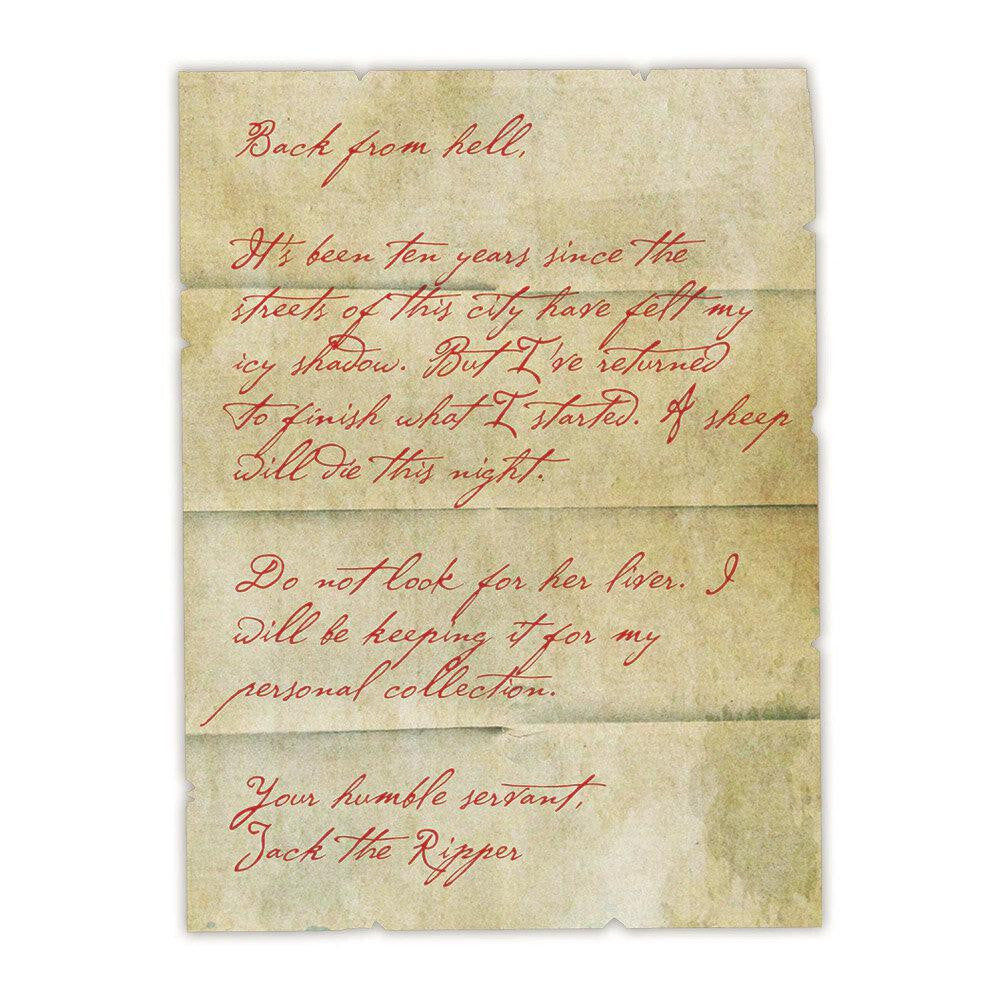 Back from hell,
It's been ten years since the
streets of this city have felt my
icy shadow. But I've returned
to finish what I started. A sheep
will die this night.
Do not look for her liver. I
will be keeping it for my
personal collection.
Your humble servant,
Jack the Ripper